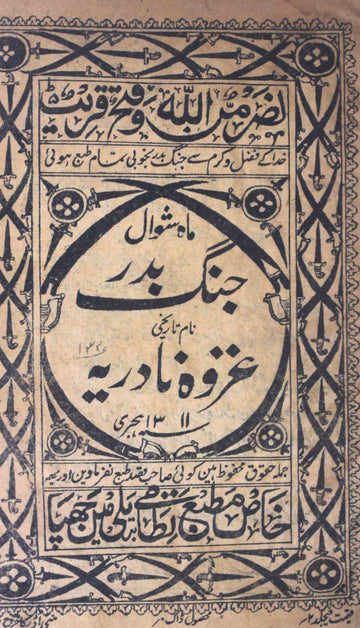 نصر من اللہ وفتح قریب
خدا کے فضل و کرم سے جنگ بدر بخوبی تمام طبع ہوئی
ماہ شوال
جنگ بدر
نام تاریخی
۱۳۲
غزوہ نادریہ
۱۳۱۱ ہجری
جملہ حقوق محفوظ ہین کوئی صاحب قصد طبع نفرماوین اور یہ
خاص مطبع نظامی بریلی مین چھپا
قیمت فیجلد
محصول ڈاک